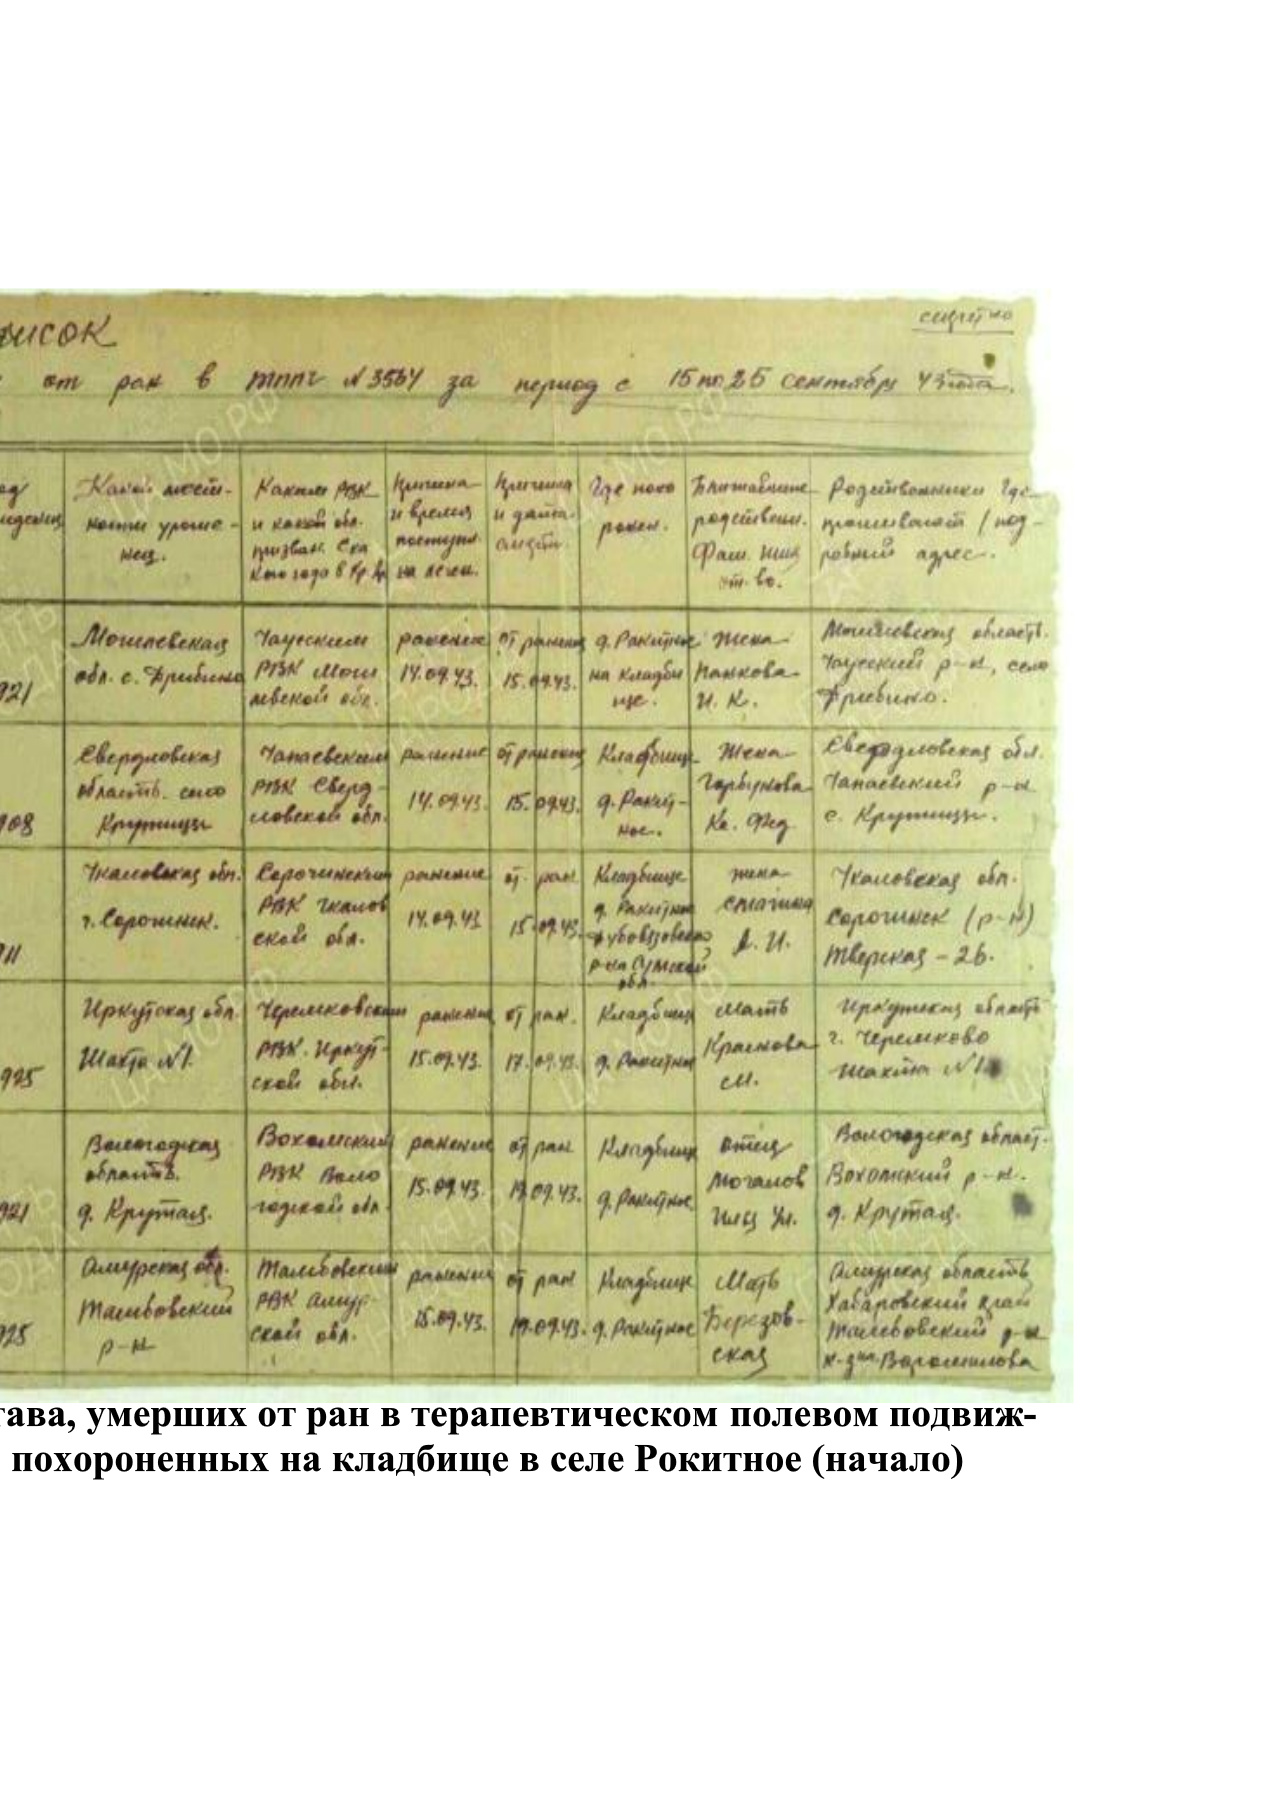 секретно
писок
от ран в ТППГ №3564 за период с 15 по 25 сентября 43 года.
Какой мест-
ности уроже-
нец.
Каким РВК
и какой обл.
призван. Ска
кого года в Кр. Ар
Причина
и время
поступл.
на лечен.
Причина
и дата
смерт.
Где похо
ронен.
Ближайшие
родственн.
Фам. имя
от-во.
Родственники где
проживают / под-
робный адрес.
921
Могилевская
обл. с. Дрибино
Чаусским
РВК Моги
левской обл.
ранение
14.09.43.
от ранения
15.09.43.
д. Ракитное
на кладби
ще.
Жена
Панкова
И. К.
Могилевская область.
Чаусский р-н, село
Дрибино.
908
Свердловская
область. село
Крутищи
Чапаевским
РВК Сверд-
ловской обл.
ранение
14.09.43.
от ранения
15.09.43.
Кладбище
д. Ракит-
ное.
Жена
Горбунова
Кл. Фед
Свердловская обл.
Чапаевский р-н
с. Крутищи.
911
Чкаловская обл.
г. Сорочинск.
Сорочинским
РВК Чкалов
ской обл.
ранение
14.09.43
от ран
15.09.43.
Кладбище
д. Ракитное
р-на Сумской
обл.
жена
А. И.
Чкаловская обл.
Сорочинск (р-н)
Тверская - 26.
925
Иркутская обл.
Шахта №1.
Черемховским
РВК. Иркут-
ской обл.
ранения
15.09.43.
от ран.
17.09.43.
Кладбище
д. Ракитное
Мать
Краснова
М.
Иркутская область
г. Черемхово
шахта №1
921
Вологодская
область.
д. Крутая.
Вохомский
РВК Воло
годской обл.
ранение
15.09.43.
от ран
19.09.43.
Кладбище
д. Ракитное
отец
Мочалов
Илья
Вологодская област.
Вохомский р-н.
д. Крутая.
925
Амурская обл.
Тамбовский
р-н
Тамбовским
РВК Амур-
ской обл.
ранения
15.09.43.
от ран
19.09.43.
Кладбище
д. Ракитное
Мать
Березов-
ская
Амурская область
Хабаровский край
Тамбовский р-н
к-з им. Ворошилова
тава, умерших от ран в терапевтическом полевом подвиж-
похороненных на кладбище в селе Рокитное (начало)